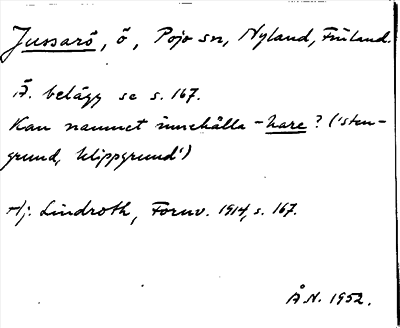 Jussarö, ö, Pojo sn, Nyland, Finland.
Ä. belägg se s. 167.
Kan namnet innehålla -hare? ('sten-
grund, klippgrund')
Hj. Lindroth, Fornv. 1914, s. 167.
Å.N. 1952.